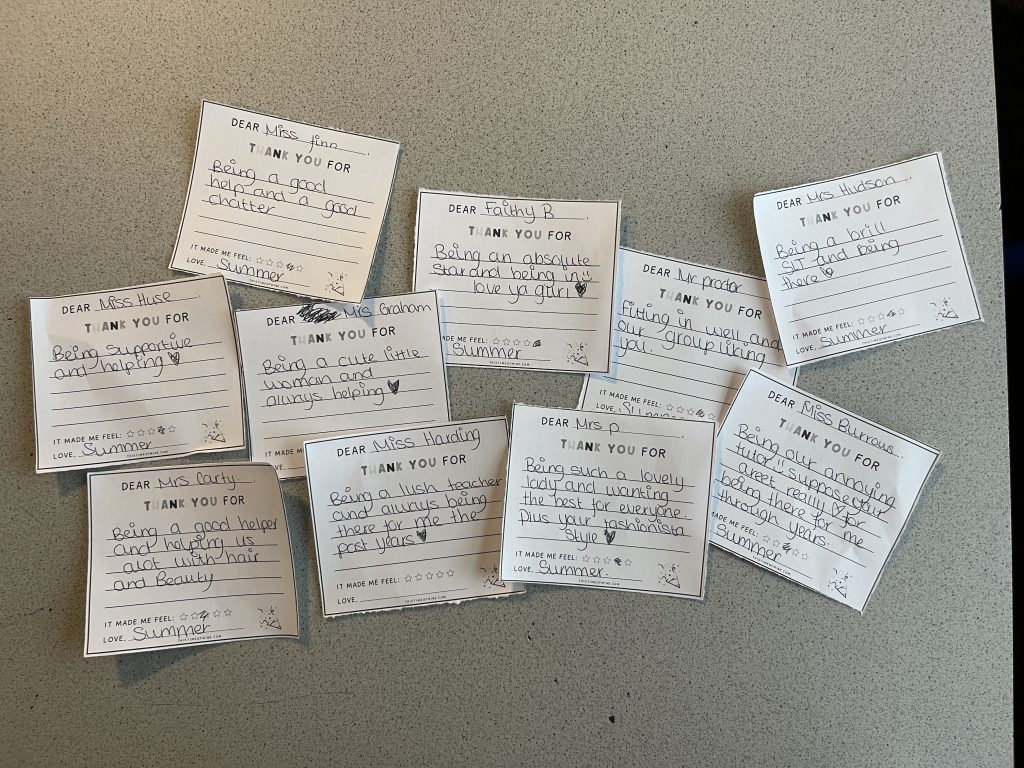 DEAR Miss finn
THANK YOU FOR
Being a good
help and a good
chatter
IT MADE ME FEEL:
LOVE, Summer
DEAR Faithy B
THANK YOU FOR
Being an absolute
star and being in
love ya gurl
ME FEEL:
Summer
DEAR Mrs Hudson
THANK YOU FOR
Being a brill
SLT and being
there
IT MADE ME FEEL:
LOVE, Summer
DEAR Mr proctor
THANK YOU FOR
Fitting in well and
our group liking
you.
IT MADE ME FEEL:
LOVE, Summer
DEAR Miss Huse
THANK YOU FOR
Being Supportive
and helping
IT MADE ME FEEL:
LOVE, Summer
THISTIMEOFMINE.COM
DEAR Mrs Graham
THANK YOU FOR
Being a cute little
woman and
always helping
IT MADE
LOVE,
DEAR Mrs Carty
THANK YOU FOR
Being a good helper
and helping us
alot with hair
and Beauty
IT MADE ME FEEL:
LOVE, Summer
THISTIMEOFMINE.COM
DEAR Miss Harding
THANK YOU FOR
Being a lush teacher
and always being
there for me the
past years
IT MADE ME FEEL:
LOVE,
THISTIMEOFMINE.COM
DEAR Mrs p
THANK YOU FOR
Being such a lovely
lady and wanting
the best for everyone
Plus your fashionista
Style
IT MADE ME FEEL:
LOVE, Summer
THISTIMEOFMINE.COM
DEAR Miss Burrows
THANK YOU FOR
Being our annoying
tutor ii suppose your
areet really for
being there for me
through years.
MADE ME FEEL:
Summer